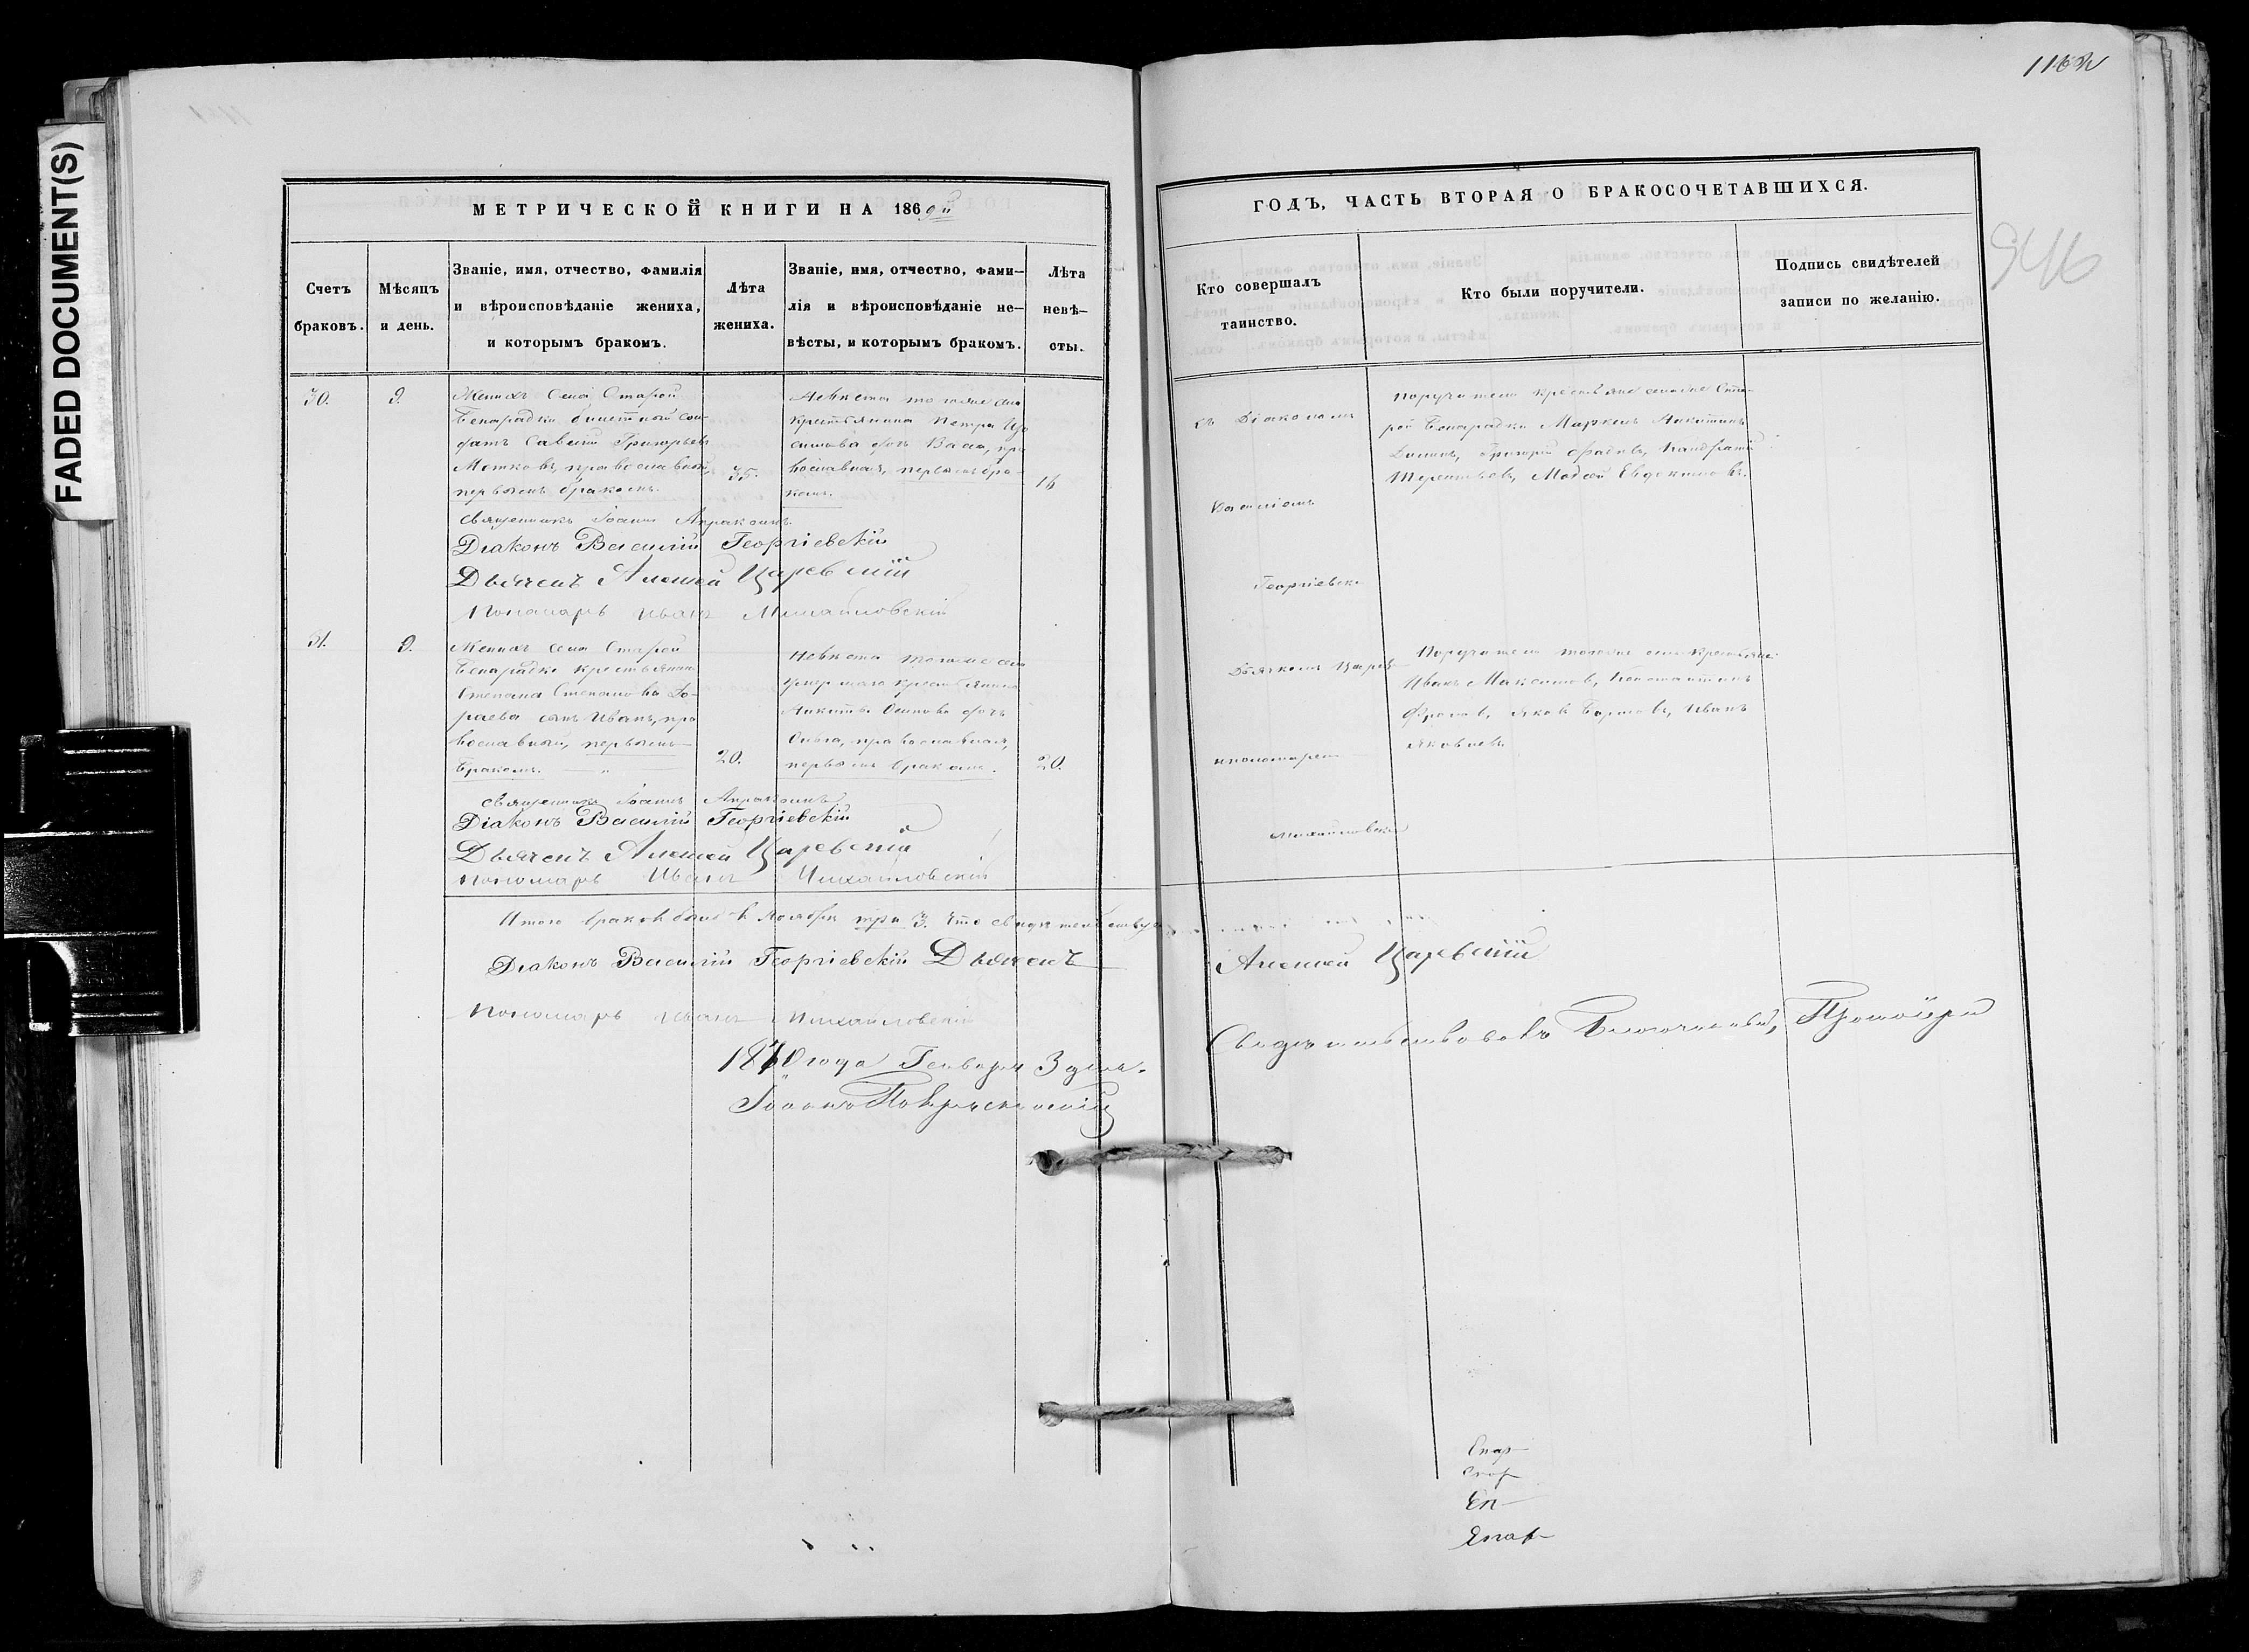 FADED DOCUMENT(S)
1162
946
МЕТРИЧЕСКОЙ КНИГИ НА 1869й
ГОДЪ, ЧАСТЬ ВТОРАЯ О БРАКОСОЧЕТАВШИХСЯ.
Счетъ
браковъ.
Мѣсяцъ
и день.
Званіе, имя, отчество, фамилія
и вѣроисповѣданіе жениха,
и которымъ бракомъ.
Лѣта
жениха.
Званіе, имя, отчество, фами-
лія и вѣроисповѣданіе не-
вѣсты, и которымъ бракомъ.
Лѣта
невѣ-
сты.
Кто совершалъ
таинство.
Кто были поручители.
Подпись свидѣтелей
записи по желанію.
30.
9.
Женихъ села Старой
Бенарадки билетный сол-
датъ Савелій Григорьевъ
православный,
первымъ бракомъ.
35.
Невѣста того же села
крестьянина Петра
дочь Васса, пра
вославная, первымъ бра-
комъ.
16
съ Діакономъ
Василіемъ
Георгіевск
Поручители крестьяне села Ста-
рой Бенарадки Маркелъ Никитинъ
Григорій
Терентьевъ, Моисей Евдокимовъ.
Священникъ Іоаннъ Апраксинъ
Діаконъ Василій Георгіевскій
Дьячекъ Алексей Царевскій
Пономарь Иванъ Михайловскій
31.
9.
Женихъ села Старой
Бенарадки крестьянина
Степана Степанова
сынъ Иванъ, пра
вославный, первымъ
бракомъ.
20.
Невѣста того же села
умершаго крестьянина
Никиты Осипова дочь
Ольга, православная,
первымъ бракомъ.
20.
Дьячкомъ Царев
и пономаремъ
Михайловск
Поручители того же села крестьяне
Иванъ Максимовъ, Константинъ
Фроловъ, Яковъ Иванъ
Яковлевъ
Священникъ Іоаннъ Апраксинъ
Діаконъ Василій Георгіевскій
Дьячекъ Алексей Царевскій
Пономарь Иванъ Михайловскій
Итого браковъ было въ Ноябрѣ три 3. Что свидѣтельствуемъ
Діаконъ Василій Георгіевскій Дьячекъ Алексей Царевскій
Пономарь Иванъ Михайловскій
Свидѣтельствовалъ Благочинный, Протоіерей
1870 года Генваря 3 дня.
Іоаннъ
Епар
Епар
Еп
Епар